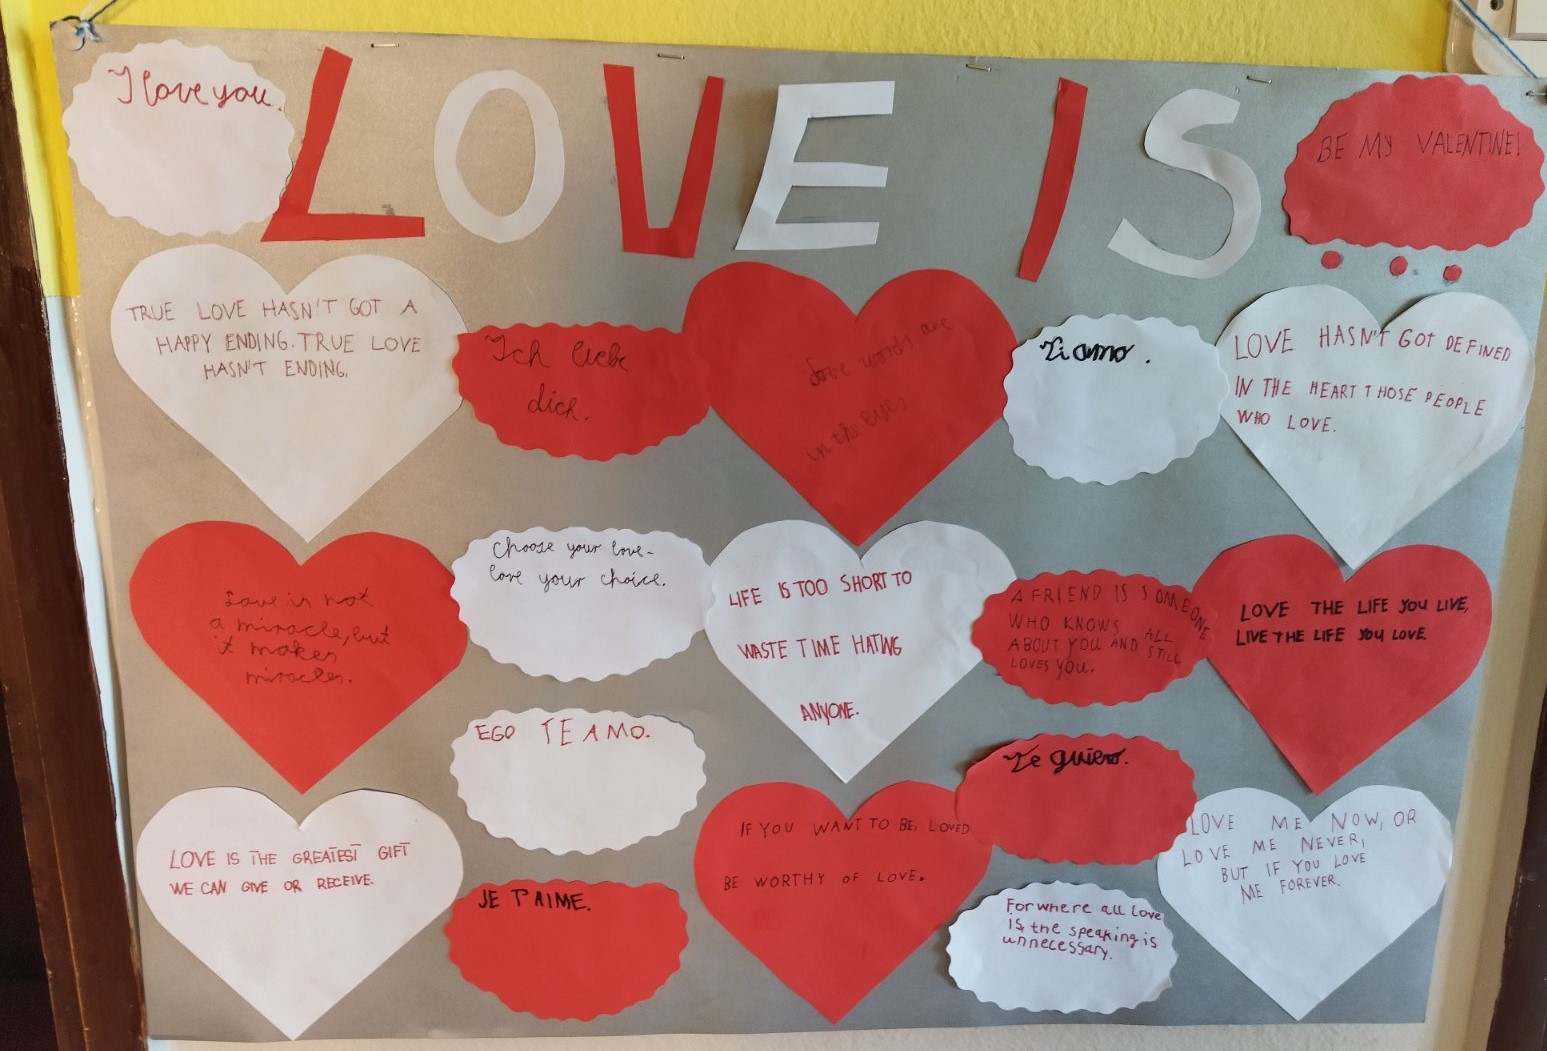 I love you.
LOVE IS
BE MY VALENTINE!
TRUE LOVE HASN'T GOT A
HAPPY ENDING. TRUE LOVE
HASN'T ENDING.
Ich liebe
dich.
Love words are
in the eyes
Ti amo.
LOVE HASN'T GOT DEFINED
IN THE HEART THOSE PEOPLE
WHO LOVE.
Love is not
a miracle, but
it makes
miracles.
Choose your love-
love your choice.
LIFE IS TOO SHORT TO
WASTE TIME HATING
ANYONE.
A FRIEND IS SOMEONE
WHO KNOWS ALL
ABOUT YOU AND STILL
LOVES YOU.
LOVE THE LIFE YOU LIVE,
LIVE THE LIFE YOU LOVE.
EGO TE AMO.
Te quiero.
LOVE IS THE GREATEST GIFT
WE CAN GIVE OR RECEIVE.
JE T'AIME.
IF YOU WANT TO BE LOVED
BE WORTHY OF LOVE.
For where all love
is the speaking is
unnecessary.
LOVE ME NOW, OR
LOVE ME NEVER,
BUT IF YOU LOVE
ME FOREVER.